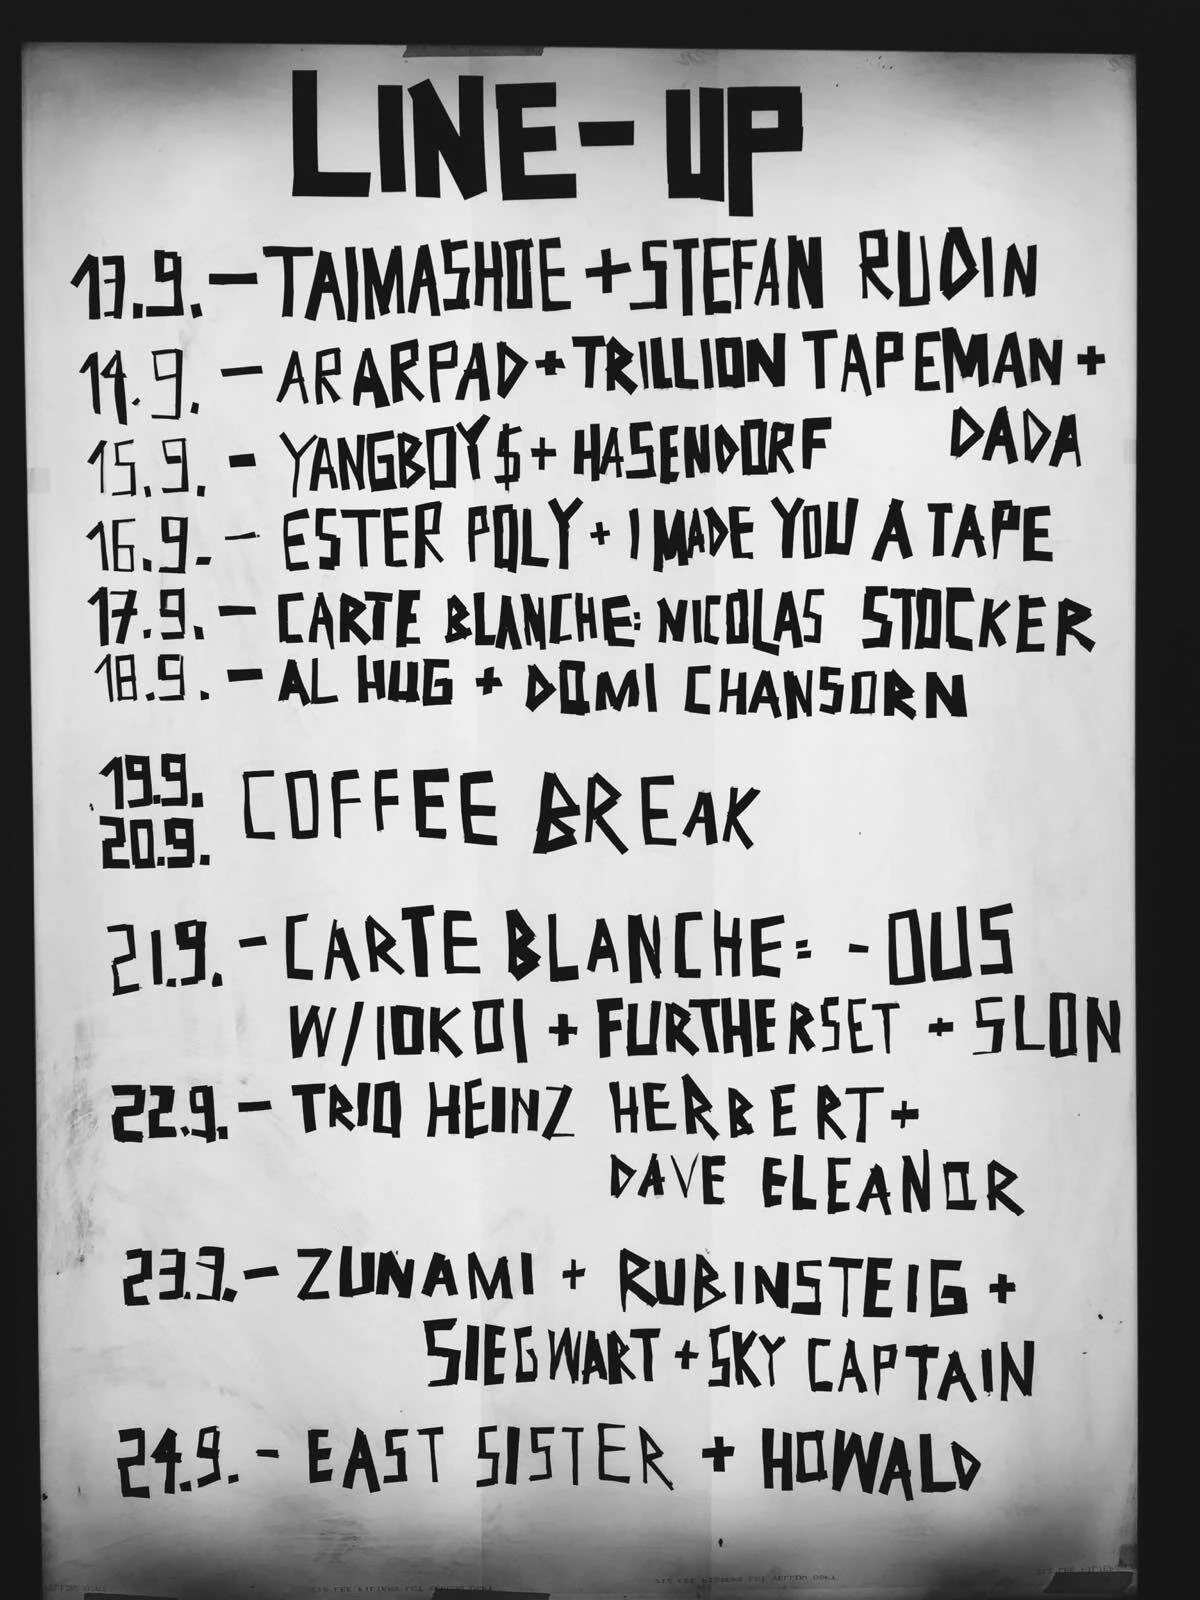 LINE-UP
13.9. - TAIMASHOE + STEFAN RUDIN
14.9. - ARARPAD + TRILLION TAPEMAN +
DADA
15.9. - YANGBOY$ + HASENDORF
16.9. - ESTER POLY + I MADE YOU A TAPE
17.9. - CARTE BLANCHE: NICOLAS STOCKER
18.9. - AL HUG + DOMI CHANSORN
19.9.
20.9. COFFEE BREAK
21.9. - CARTE BLANCHE: - OUS
W/IOKOI + FURTHERSET + SLON
22.9. - TRIO HEINZ HERBERT +
DAVE ELEANOR
23.9. - ZUNAMI + RUBINSTEIG +
SIEGWART + SKY CAPTAIN
24.9. - EAST SISTER + HOWALD